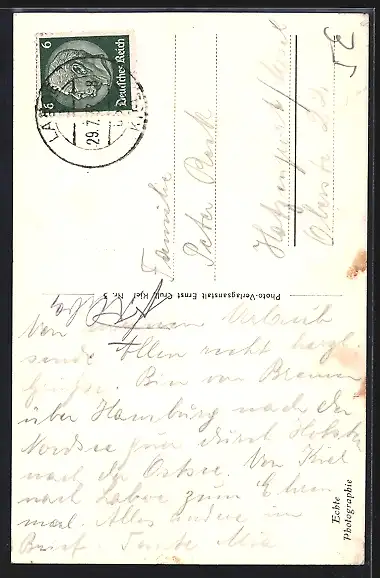 6 Deutsches Reich 6
29.7.
Familie
Peter
Hatzenport / Mosel
Photo-Verlagsanstalt Ernst Crull, Kiel Nr. 3
Von Urlaub
sende Allen recht herzl.
Grüße. Bin von Bremen
über Hamburg nach der
Nordsee durch
nach der Ostsee. Von Kiel
nach Laboe zum Ehren
mal. Alles andere im
Brief. Tante
Echte
Photographie